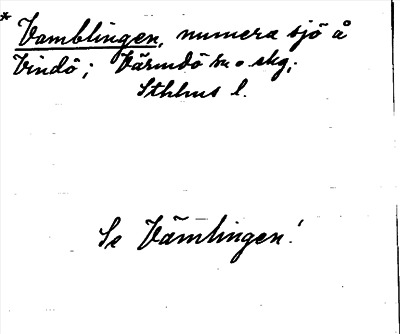 * Vamblingen, numera sjö å
Vindö; Värmdö sn o. skg;
Sthlms l.
Se Vämlingen!